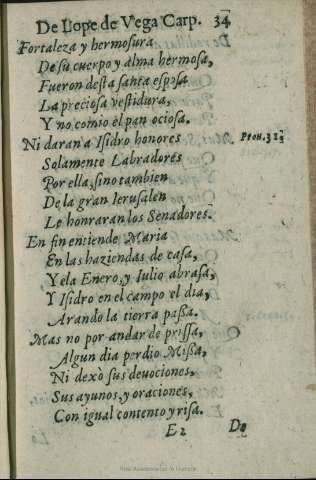 De Lope de Vega Carp. 34
Fortaleza y hermosura
De su cuerpo y alma hermosa,
Fueron desta santa esposa
La preciosa vestidura,
Y no comio el pan ociosa.
Ni daran a Isidro honores Prou.31
Solamente Labradores
Por ella, sino tambien
De la gran Ierusalen
Le honraran los Senadores.
En fin entiende Maria
En las haziendas de casa,
Yela Enero, y Iulio abrasa,
Y Isidro en el campo el dia,
Arando la tierra passa.
Mas no por andar de prissa,
Algun dia perdio Missa,
Ni dexò sus deuociones,
Sus ayunos, y oraciones,
Con igual contento y risa.
E2 De